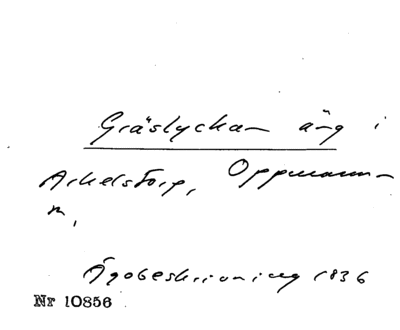 Gräslyckan äng i
Arkelstorp, Oppmanna
n,
Ägobeskrivning 1836
Nr 10856